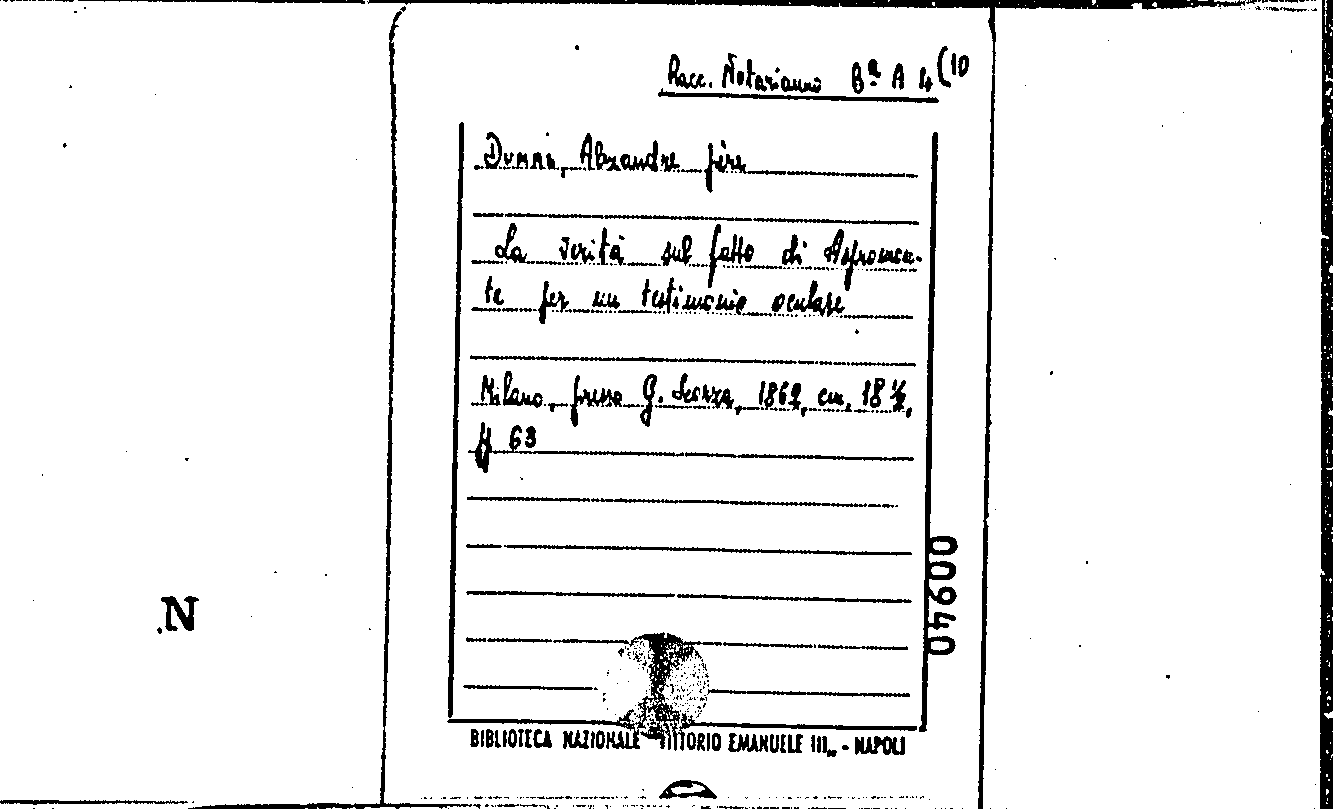 Racc. Notarianno Bª A 4 (10
Dumas, Alexandre père
La verità sul fatto di Aspromon-
te per un testimonio oculare
Milano, presso G. Scorza, 1862, cm. 18 ½,
pp 63
00940
N
BIBLIOTECA NAZIONALE "VITTORIO EMANUELE III„ - NAPOLI